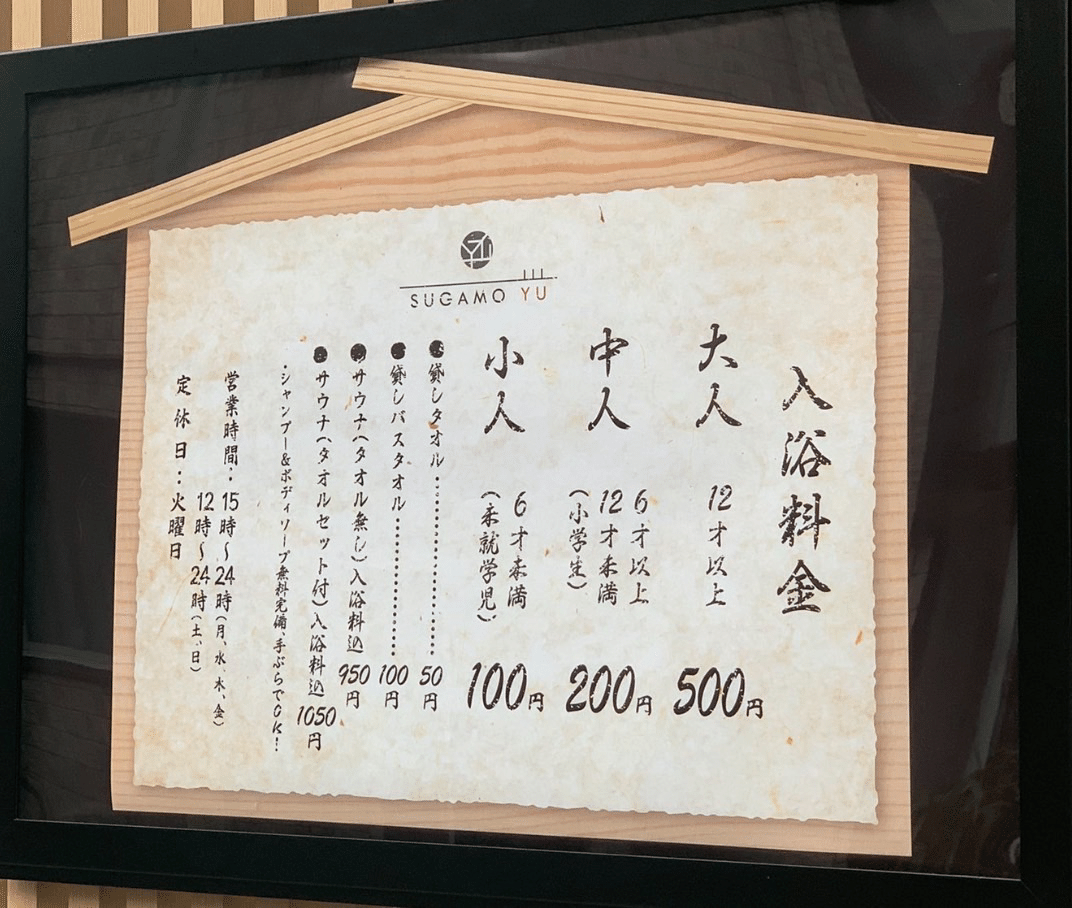 SUGAMO YU
入浴料金
大人 12才以上 500円
中人 6才以上
12才未満
(小学生) 200円
小人 6才未満
(未就学児) 100円
●貸しタオル……………50円
●貸しバスタオル……………100円
●サウナ(タオル無し)入浴料込 950円
●サウナ(タオルセット付)入浴料込 1050円
・シャンプー&ボディソープ無料完備、手ぶらでOK!
営業時間: 15時~24時(月、水、木、金)
12時~24時(土、日)
定休日:火曜日